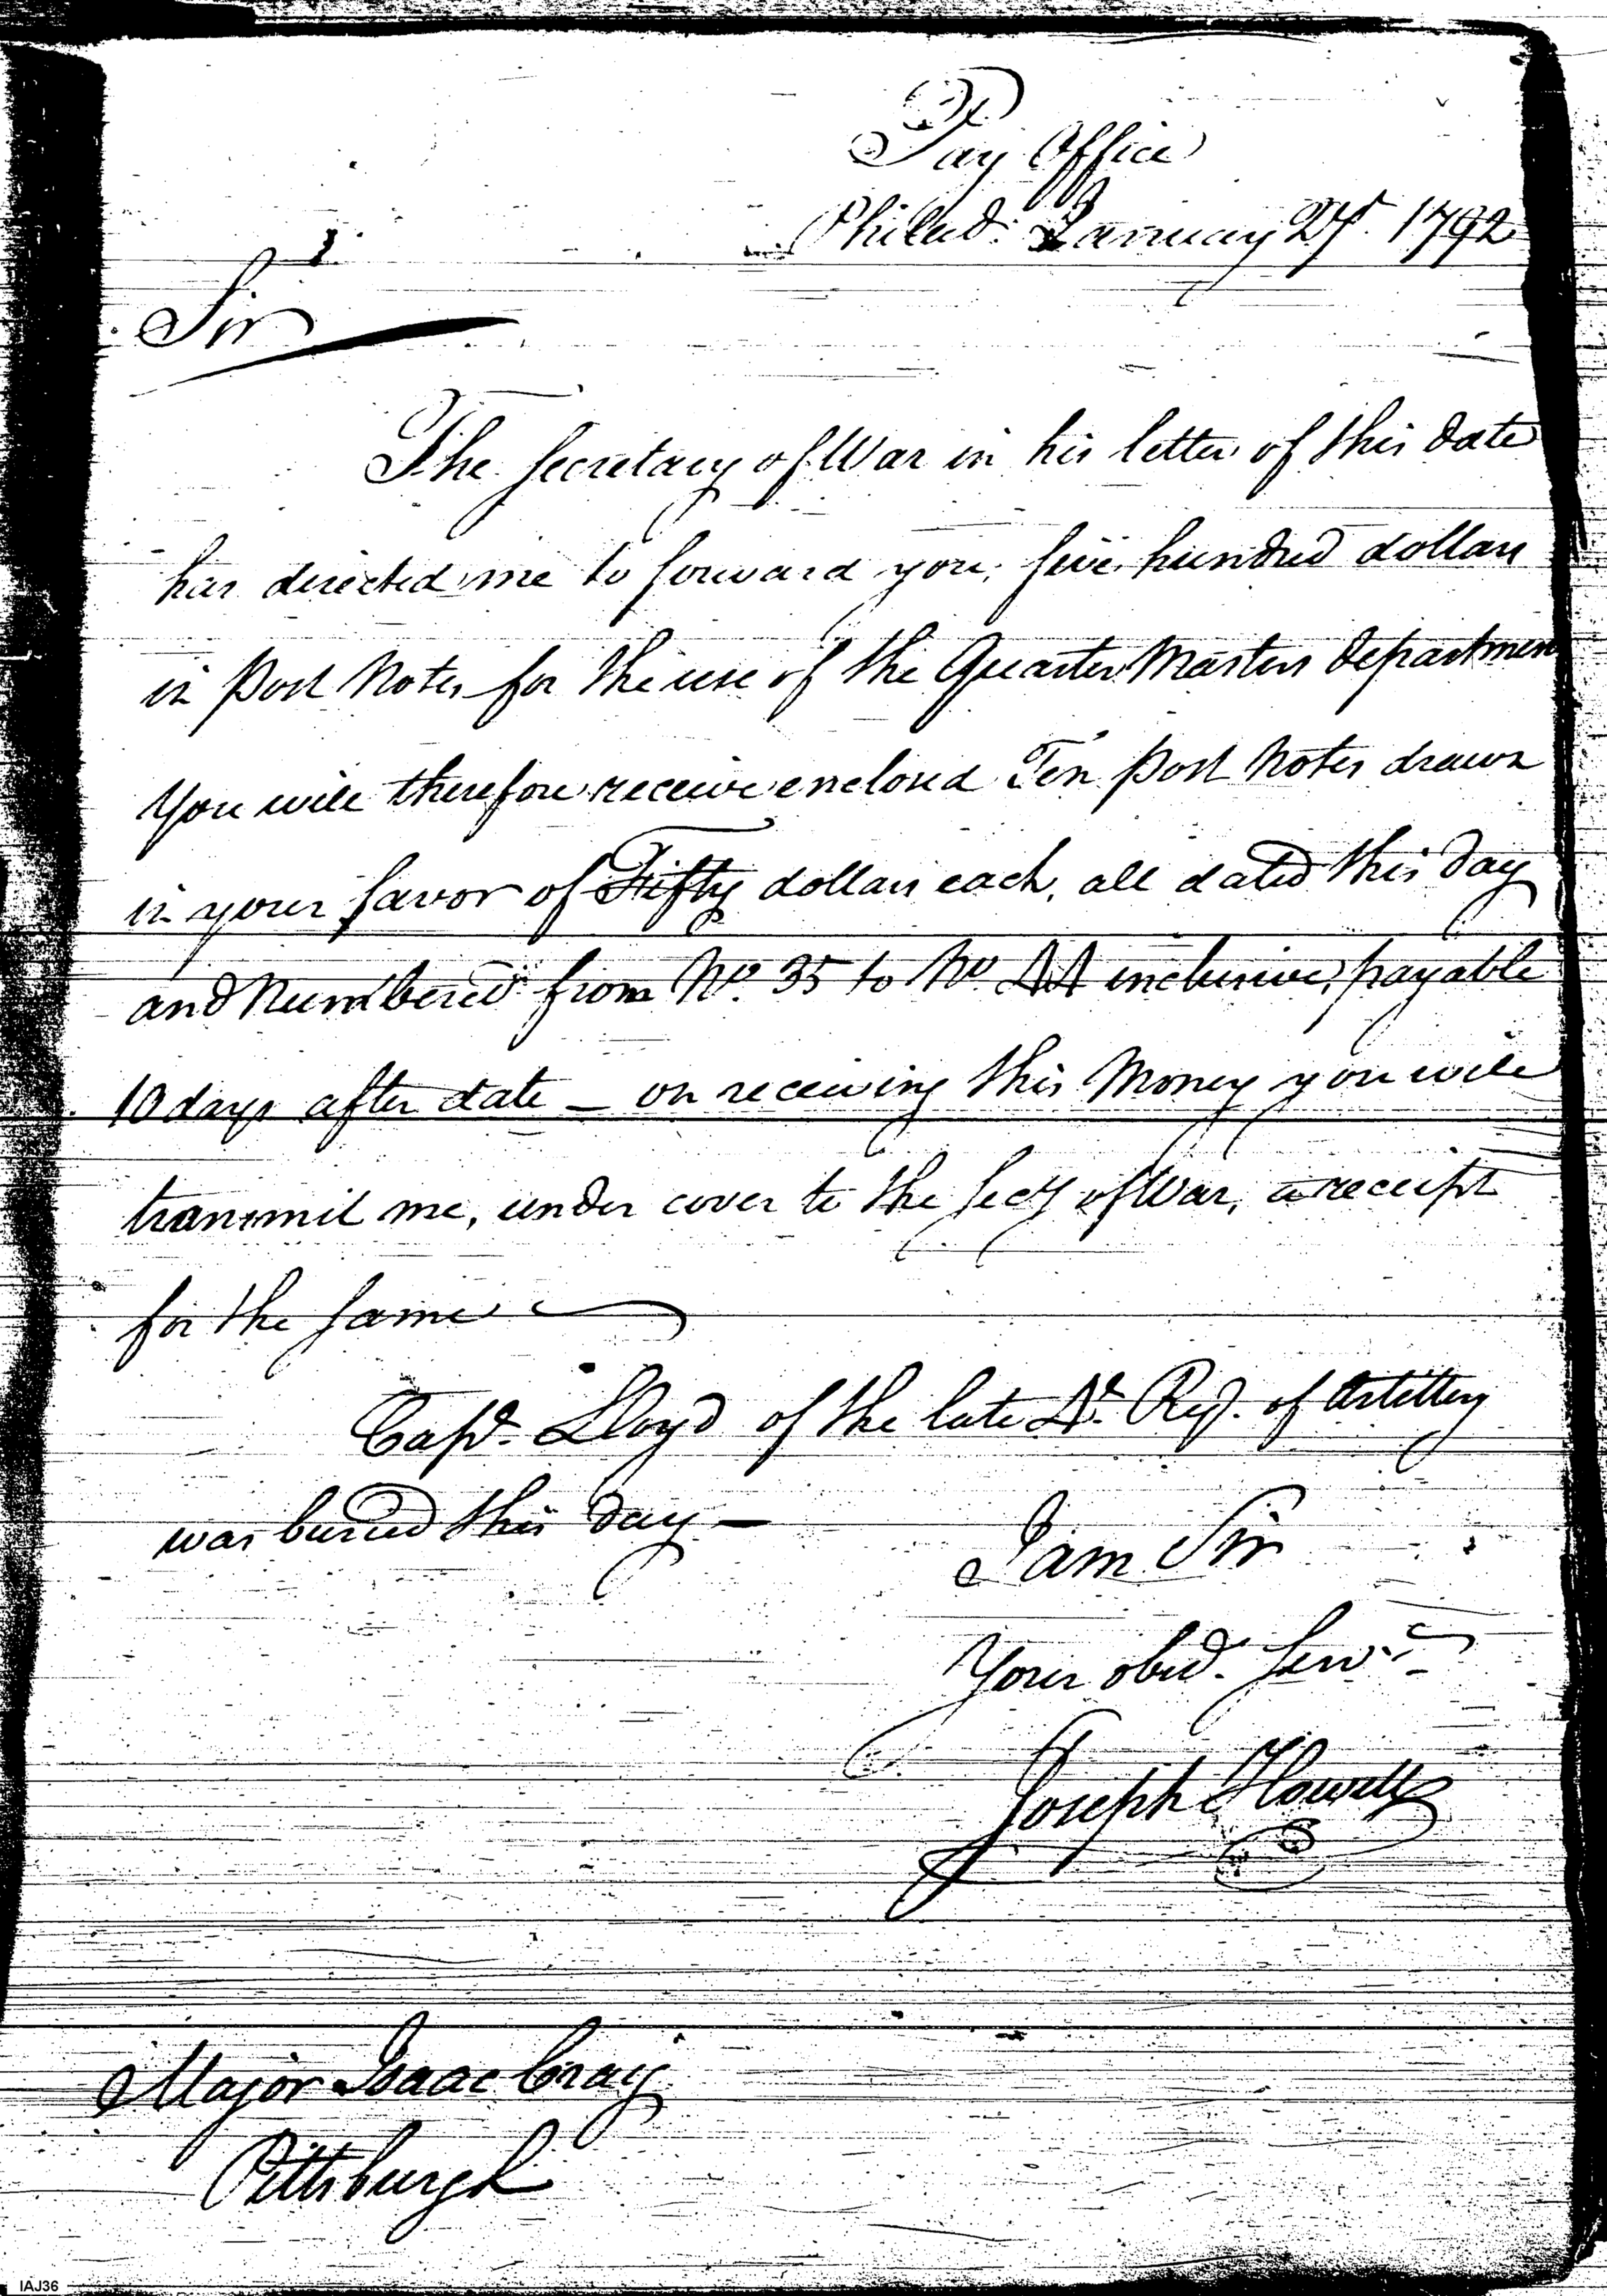 Pay Office
Philad: January 27. 1792
Sir
The Secretary of War in his letter of this date
has directed me to forward you, five hundred dollars
in post Notes for the use of the Quarter Masters departmen
You will therefore receive enclosed Ten post Notes drawn
in your favor of Fifty dollars each, all dated this day
and Numbered from No. 35 to No 44 inclusive, payable
10 days after date — on receiving this Money you will
transmit me, under cover to the Secy of War, a receipt
for the same
Capt. Lloyd of the late Regt. of Artillery
was buried this day —
I am Sir
Your obed. Serv.
Joseph Howell
Major Isaac Craig
Pittsburgh
IAJ36